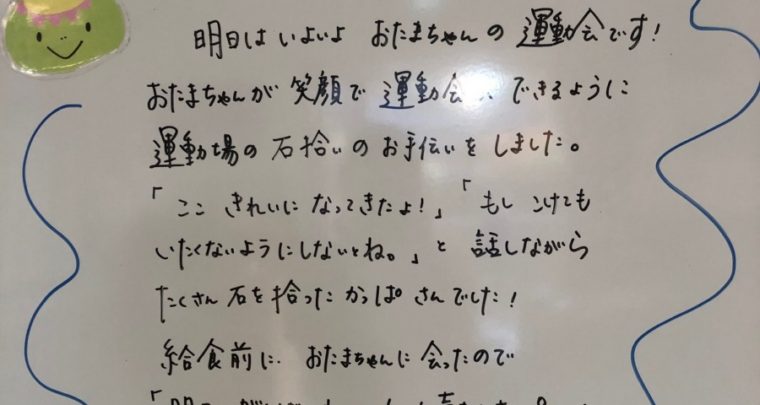 明日は いよいよ おたまちゃんの 運動会です!
おたまちゃんが 笑顔で 運動会 できるように
運動場の 石拾いの お手伝いを しました。
「ここ きれいに なってきたよ!」「もし こけても
いたくないようにしないとね。」と 話しながら
たくさん 石を 拾った かっぱ さんでした!
給食前に おたまちゃんに 会ったので